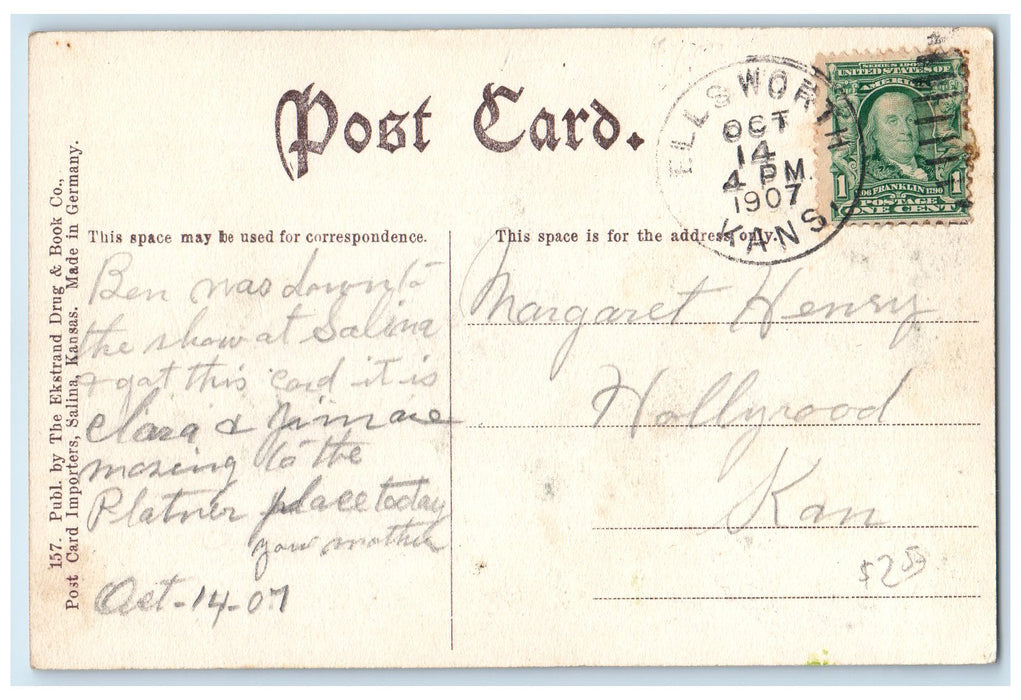 Post Card.
ELLSWORTH
OCT
14
4 PM
1907
KANS.
SERIES 1902
UNITED STATES OF
AMERICA
1706 FRANKLIN 1790
1 POSTAGE 1
ONE CENT
157. Publ. by The Ekstrand Drug & Book Co.,
Post Card Importers, Salina, Kansas. Made in Germany.
This space may be used for correspondence.
Ben was down to
the show at Salina
& got this card it is
Clara & Jim are
moving to the
Platner place today
your mother
Oct-14-07
This space is for the address only.
Margaret Henry
Hollyrood
Kan